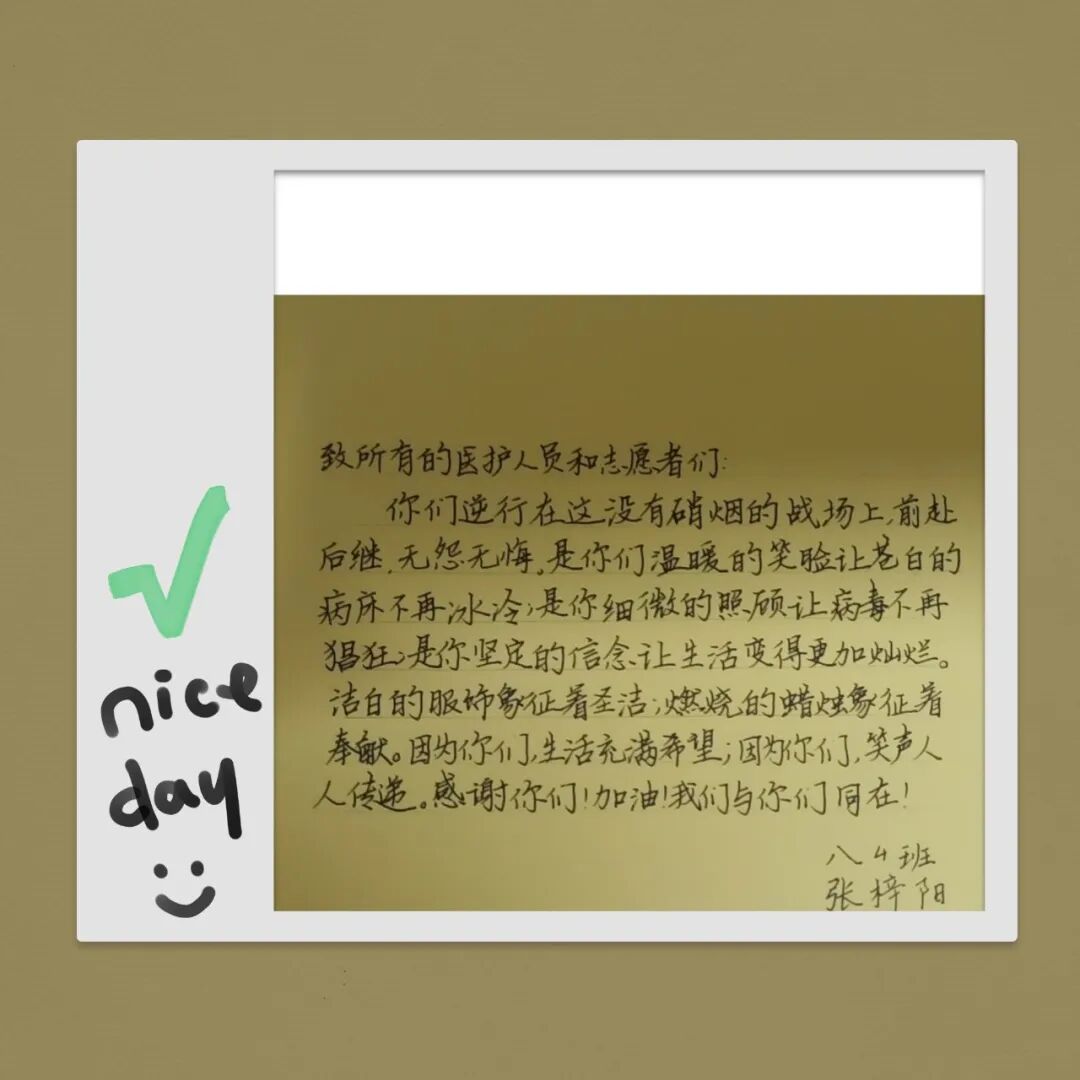 致所有的医护人员和志愿者们:
你们逆行在这没有硝烟的战场上,前赴
后继,无怨无悔,是你们温暖的笑脸让苍白的
病床不再冰冷;是你细微的照顾让病毒不再
猖狂;是你坚定的信念让生活变得更加灿烂。
洁白的服饰象征着圣洁;燃烧的蜡烛象征着
奉献。因为你们,生活充满希望;因为你们,笑声人
人传递。感谢你们!加油!我们与你们同在!
八4班
张梓阳
nice
day